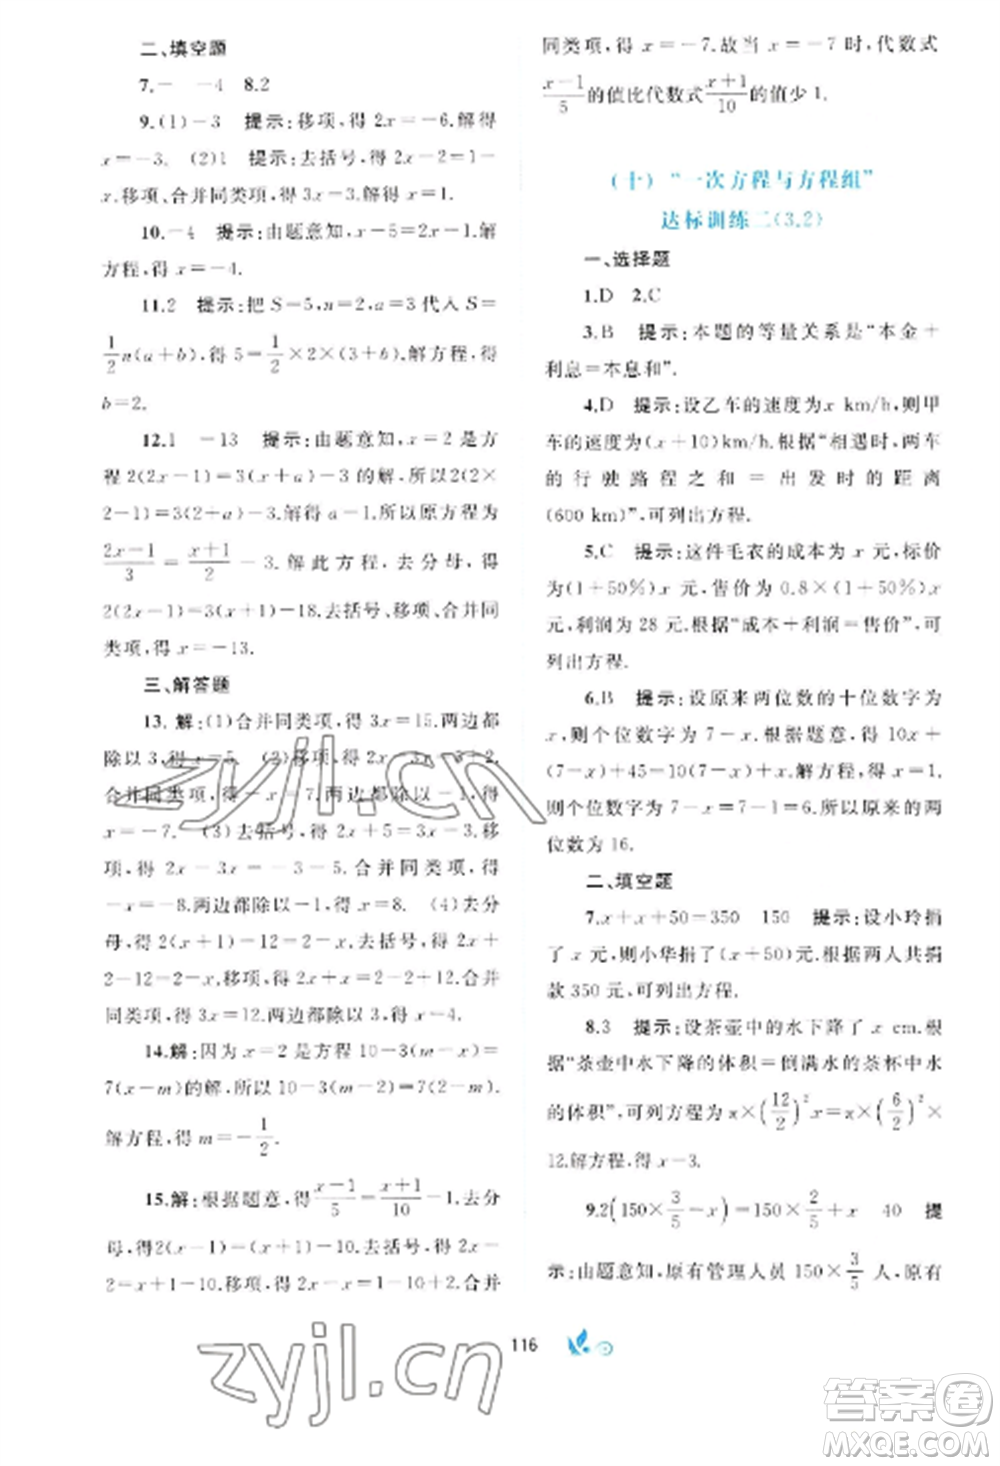 二、填空题
7.- -4 8.2
9.(1)-3 提示:移项,得 2x=-6.解得
x=-3. (2)1 提示:去括号,得 2x-2=1-
x.移项、合并同类项,得 3x=3.解得 x=1.
10.-4 提示:由题意知,x-5=2x-1.解
方程,得 x=-4.
11.2 提示:把 S=5,n=2,a=3代入 S=
1/2 n(a+b),得 5=1/2×2×(3+b).解方程,得
b=2.
12.1 -13 提示:由题意知,x=2是方
程 2(2x-1)=3(x+a)-3的解,所以 2(2×
2-1)=3(2+a)-3.解得 a=1.所以原方程为
(2x-1)/3=(x+1)/2-3.解此方程,去分母,得
2(2x-1)=3(x+1)-18.去括号、移项、合并同
类项,得 x=-13.
三、解答题
13.解:(1)合并同类项,得 3x=15.两边都
除以 3,得 x=5. (2)移项,得
合并同类项,得 -x=7.两边都除以-1,得
x=-7. (3)去括号,得 移
项,得 合并同类项,得
-x=-8.两边都除以-1,得 x=8. (4)去分
母,得 2(x+1)-12=2-x.去括号,得 2x+
2-12=2-x.移项,得 2x+x=2-2+12.合并
同类项,得 3x=12.两边都除以 3,得 x=4.
14.解:因为 x=2 是方程 10-3(m-x)=
7(x-m)的解,所以 10-3(m-2)=7(2-m).
解方程,得 m=-1/2.
15.解:根据题意,得(x-1)/5=(x+1)/10-1,去分
母,得2(x-1)=(x+1)-10.去括号,得 2x-
2=x+1-10.移项,得 2x-x=1-10+2.合并
同类项,得 x=-7.故当 x=-7 时,代数式
(x-1)/5的值比代数式(x+1)/10的值少 1.
(十)“一次方程与方程组”
达标训练二(3.2)
一、选择题
1.D 2.C
3.B 提示:本题的等量关系是“本金+
利息=本息和”.
4.D 提示:设乙车的速度为 x km/h,则甲
车的速度为(x+10)km/h.根据“相遇时,两车
的行驶路程之和=出发时的距离
(600 km)”,可列出方程.
5.C 提示:这件毛衣的成本为 x 元,标价
为(1+50%)x 元,售价为 0.8×(1+50%)x
元,利润为 28 元.根据“成本+利润=售价”,可
列出方程.
6.B 提示:设原来两位数的十位数字为
x,则个位数字为 7-x.根据题意,得 10x+
(7-x)+45=10(7-x)+x.解方程,得 x=1.
则个位数字为 7-x=7-1=6.所以原来的两
位数为 16.
二、填空题
7.x+x+50=350 150 提示:设小玲捐
了 x 元,则小华捐了(x+50)元.根据两人共捐
款 350 元,可列出方程.
8.3 提示:设茶壶中的水下降了 x cm.根
据“茶壶中水下降的体积=倒满水的茶杯中水
的体积”,可列方程为 π×(12/2)²x=π×(6/2)²×
12.解方程,得 x=3.
9.2(150×3/5-x)=150×2/5+x 40 提
示:由题意知,原有管理人员 150×3/5 人,原有
116
zyjl.cn
zyjl.cn
答案圈
MXQE.COM